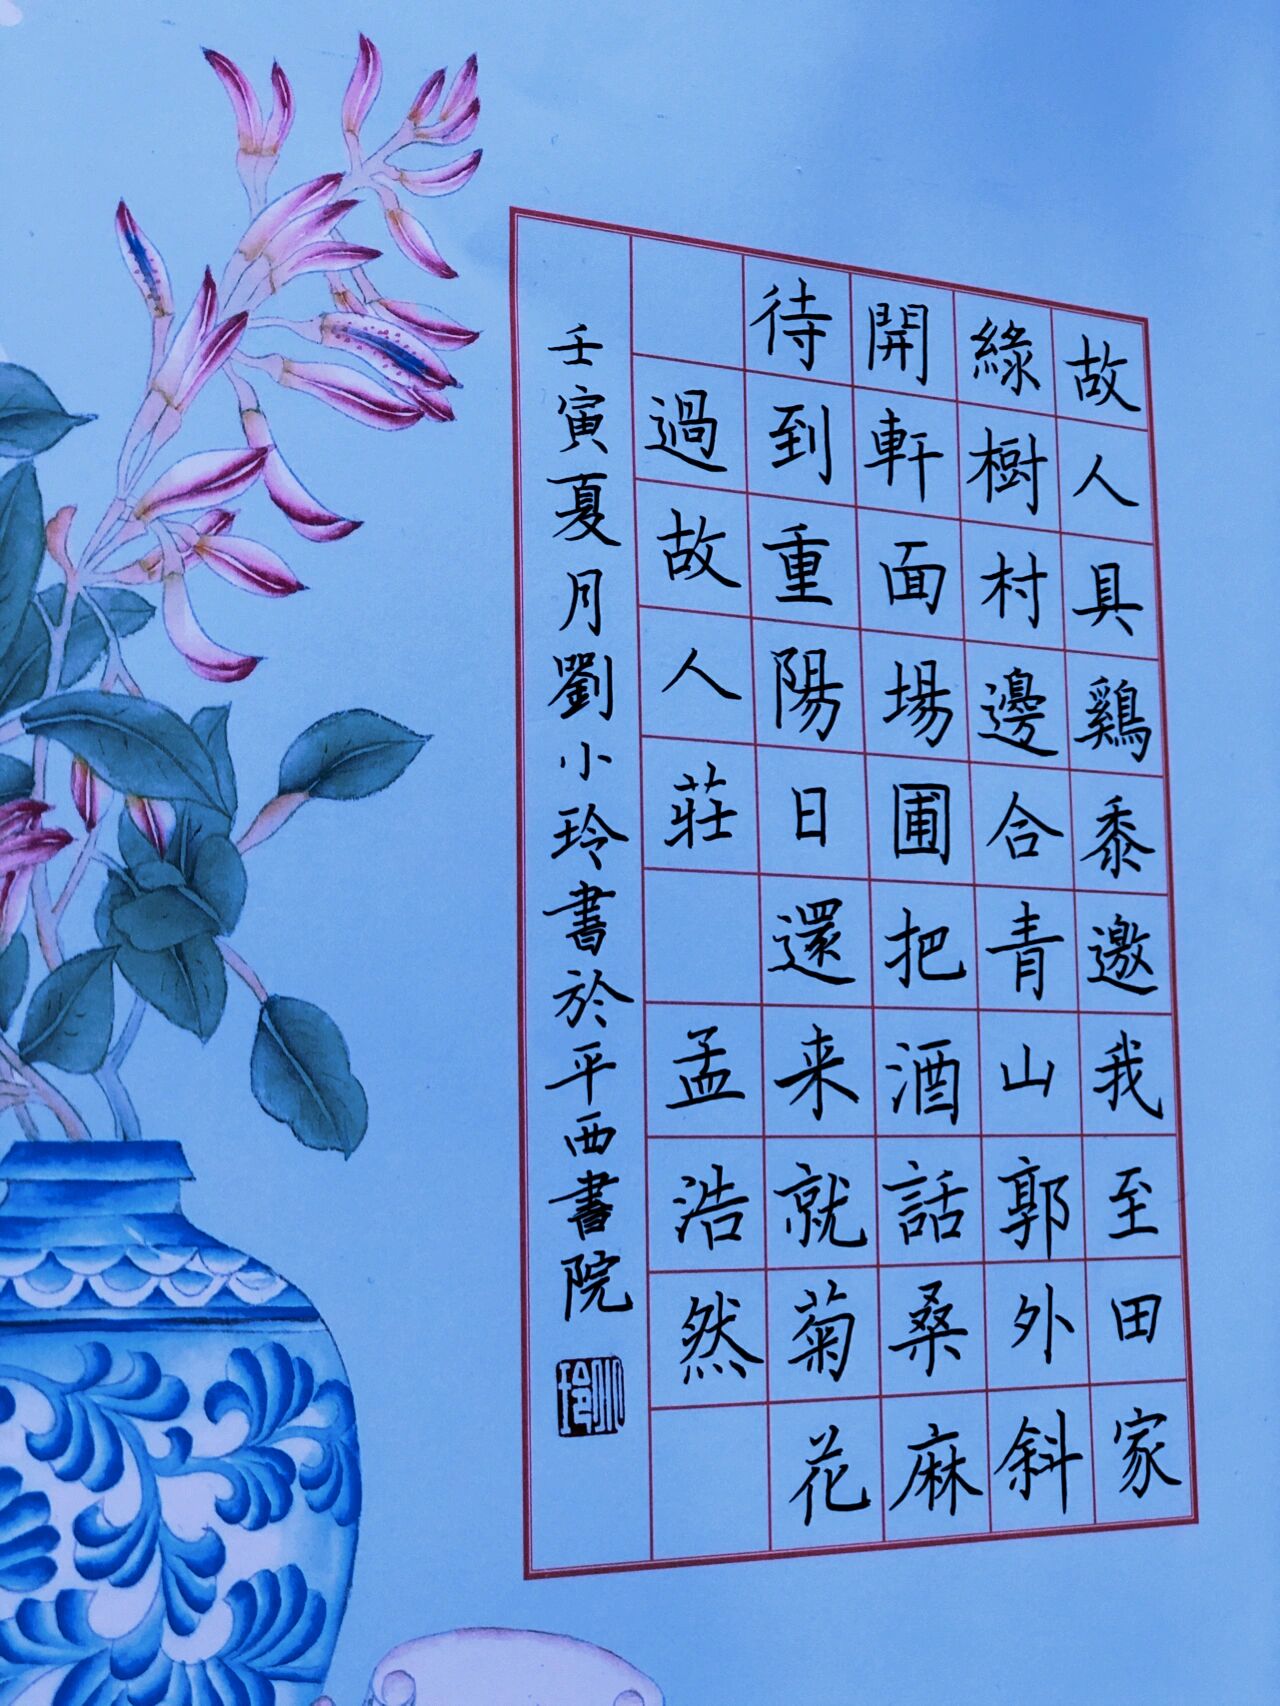 故人具鷄黍邀我至田家
綠樹村邊合青山郭外斜
開軒面場圃把酒話桑麻
待到重陽日還来就菊花
過故人莊 孟浩然
壬寅夏月劉小玲書於平西書院
小玲